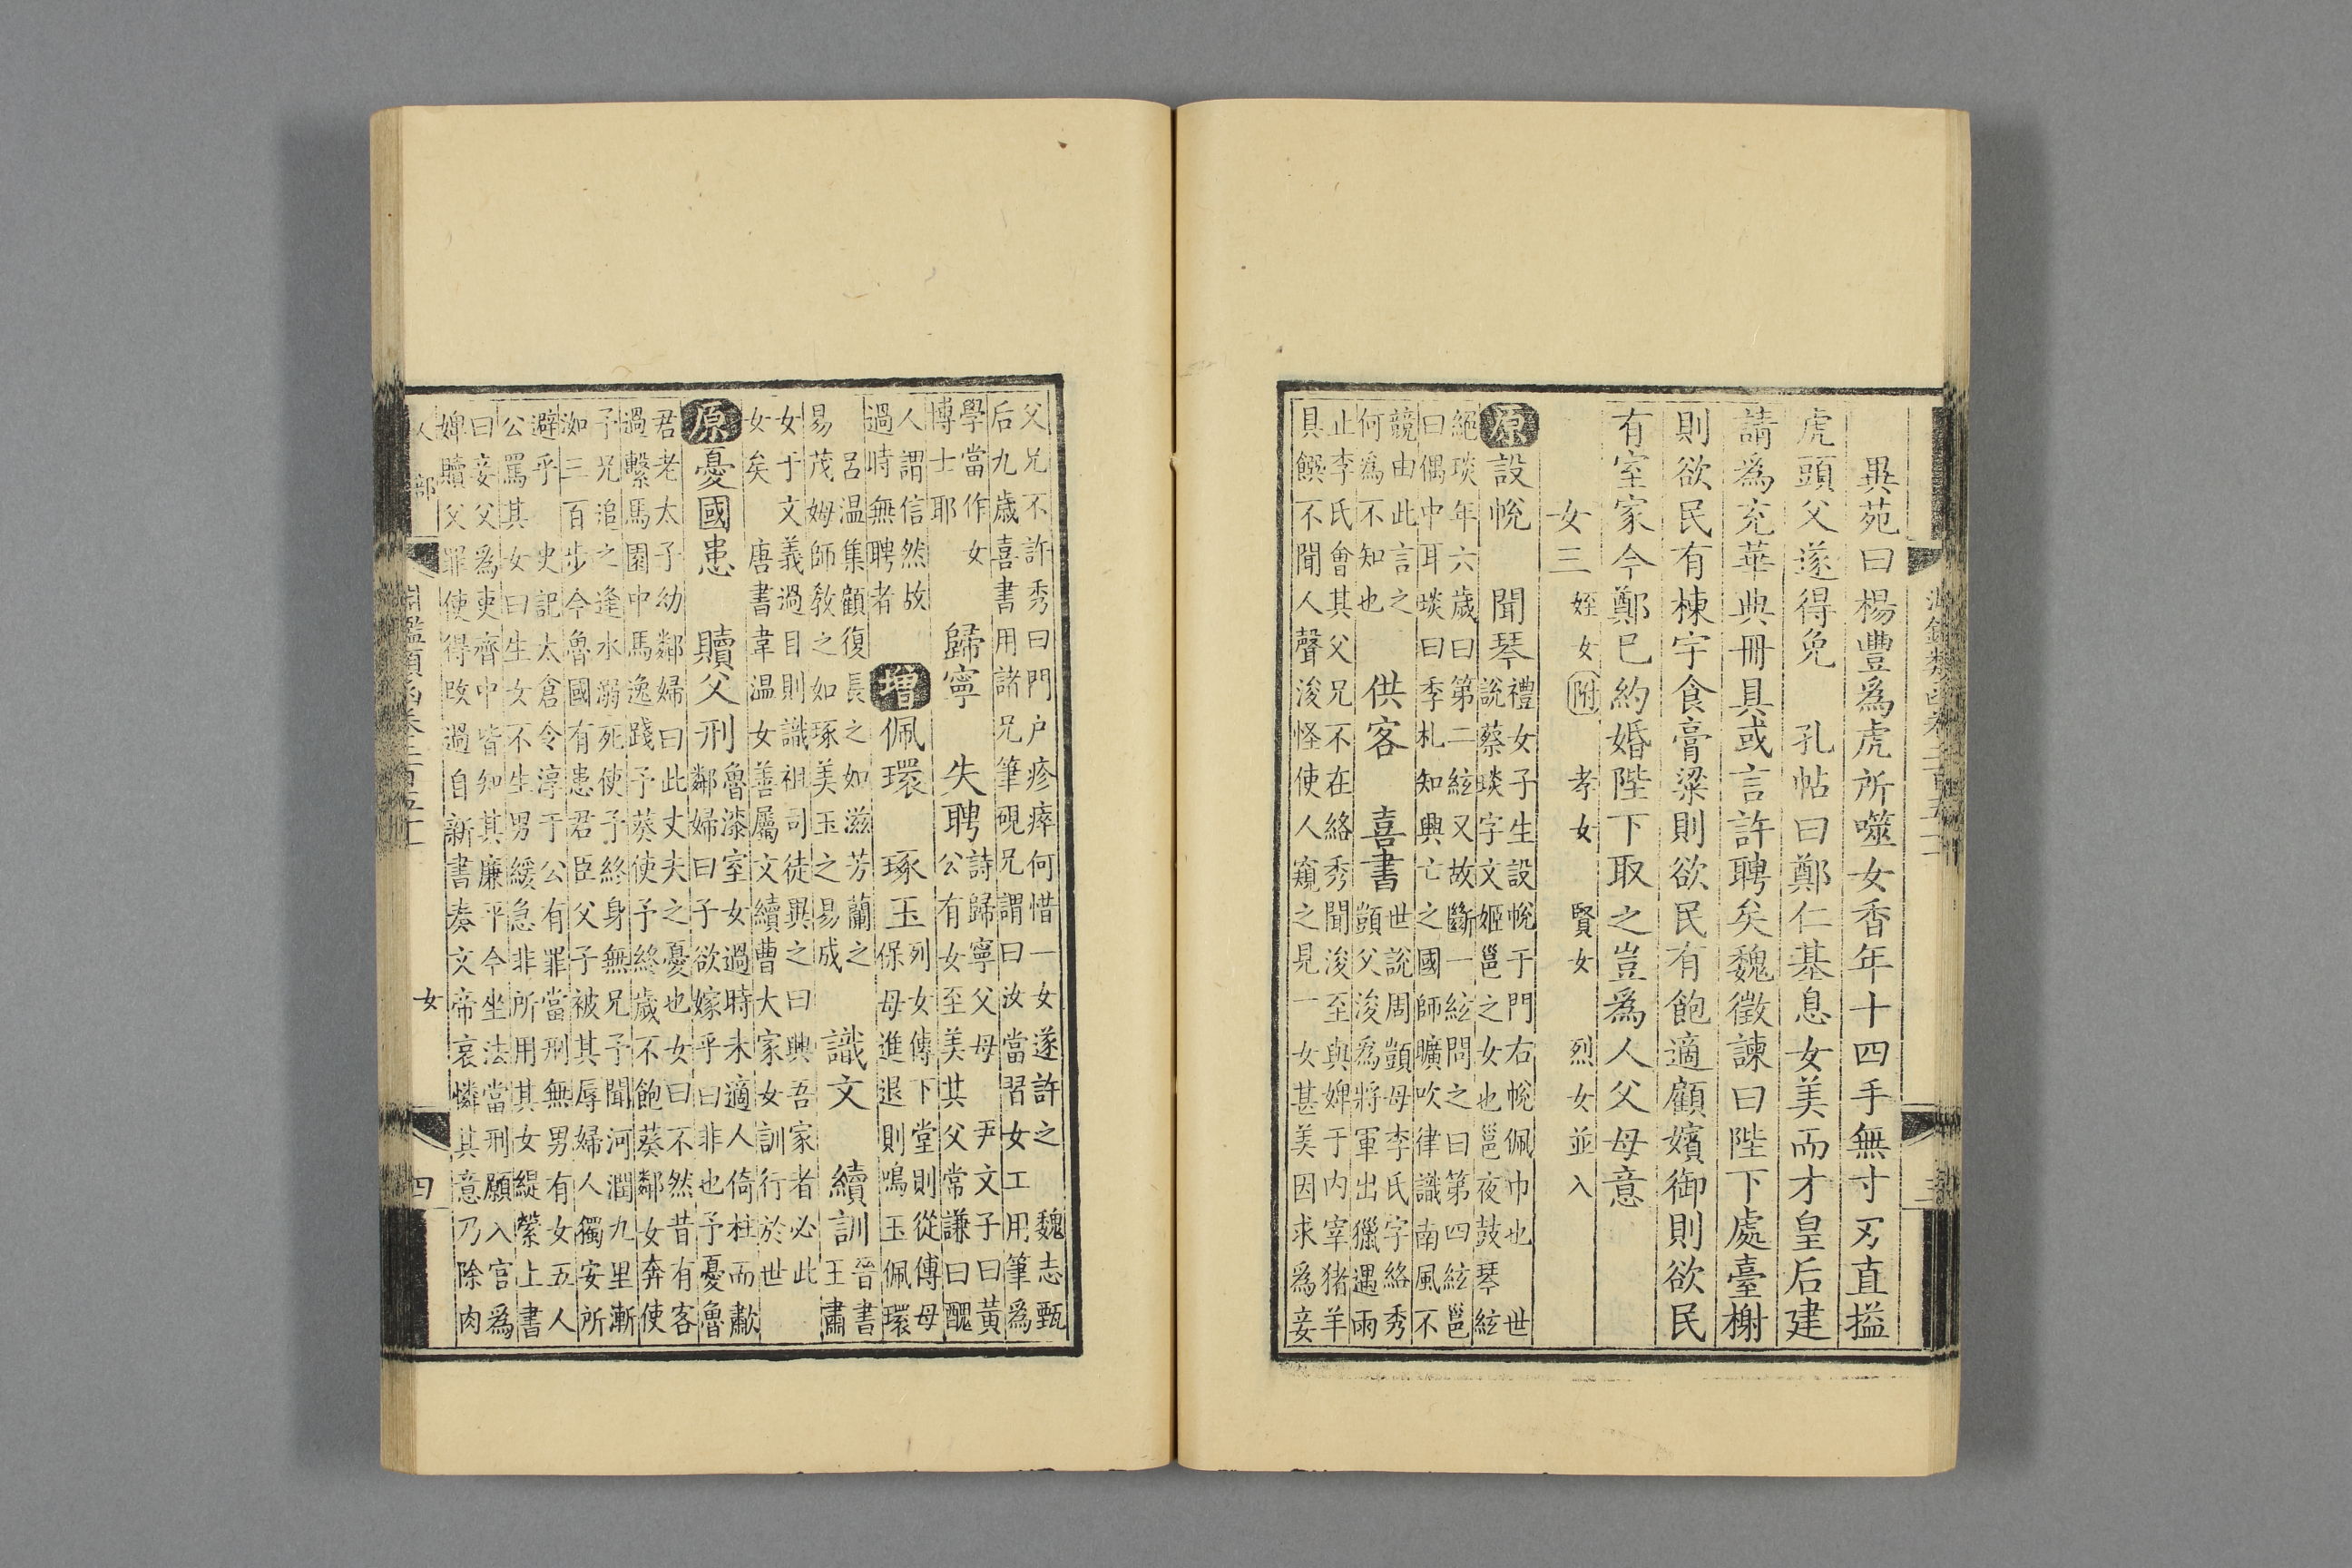 異苑曰楊豐爲虎所噬女香年十四手無寸刄直搤
虎頭父遂得免　孔帖曰鄭仁基息女美而才皇后建
請爲充華典冊具或言許聘矣魏徵諫曰陛下處臺榭
則欲民有棟宇食膏粱則欲民有飽適顧嬪御則欲民
有室家今鄭已約婚陛下取之豈爲人父母意
女三　姪女附　孝女　賢女　烈女並入
原設帨　聞琴
禮女子生設帨于門右帨佩巾也　世
說蔡琰字文姬邕之女也邕夜鼓琴絃
絕琰年六歲曰第二絃又故斷一絃問之曰第四絃邕
曰偶中耳琰曰季札知興亡之國師曠吹律識南風不
競由此言之
何爲不知也
供客　喜書
世說周顗母李氏字絡秀
顗父浚爲將軍出獵遇雨
止李氏會其父兄不在絡秀聞浚至與婢于内宰猪羊
具饌不聞人聲浚怪使人窺之見一女甚美因求爲妾
父兄不許秀曰門户疹瘁何惜一女遂許之　魏志甄
后九歲喜書用諸兄筆硯兄謂曰汝當習女工用筆爲
學當作女
博士耶
歸寧　失聘
詩歸寧父母　尹文子曰黃
公有女至美其父常謙曰醜
人謂信然故
過時無聘者
增佩環　琢玉
列女傳下堂則從傅母
保母進退則鳴玉佩環
呂温集顧復長之如滋芳蘭之
易茂姆師敎之如琢美玉之易成
識文　續訓
晉書
王肅
女于文義過目則識祖司徒異之曰興吾家者必此
女矣　唐書韋温女善屬文續曹大家女訓行於世
原憂國患　贖父刑
魯漆室女過時未適人倚柱而歗
鄰婦曰子欲嫁乎曰非也予憂魯
君老太子幼鄰婦曰此丈夫之憂也女曰不然昔有客
過繫馬園中馬逸踐予葵使予終歲不飽葵鄰女奔使
子兄追之逢水溺死使子終身無兄予聞河潤九里漸
洳三百步今魯國有患君臣父子被其辱婦人獨安所
避乎　史記太倉令淳于公有罪當刑無男有女五人
公罵其女曰生女不生男緩急非所用其女緹縈上書
曰妾父爲吏齊中皆知其廉平今坐法當刑願入官爲
婢贖父罪使得改過自新書奏文帝哀憐其意乃除肉
淵鑑類函卷二百五十　女　四